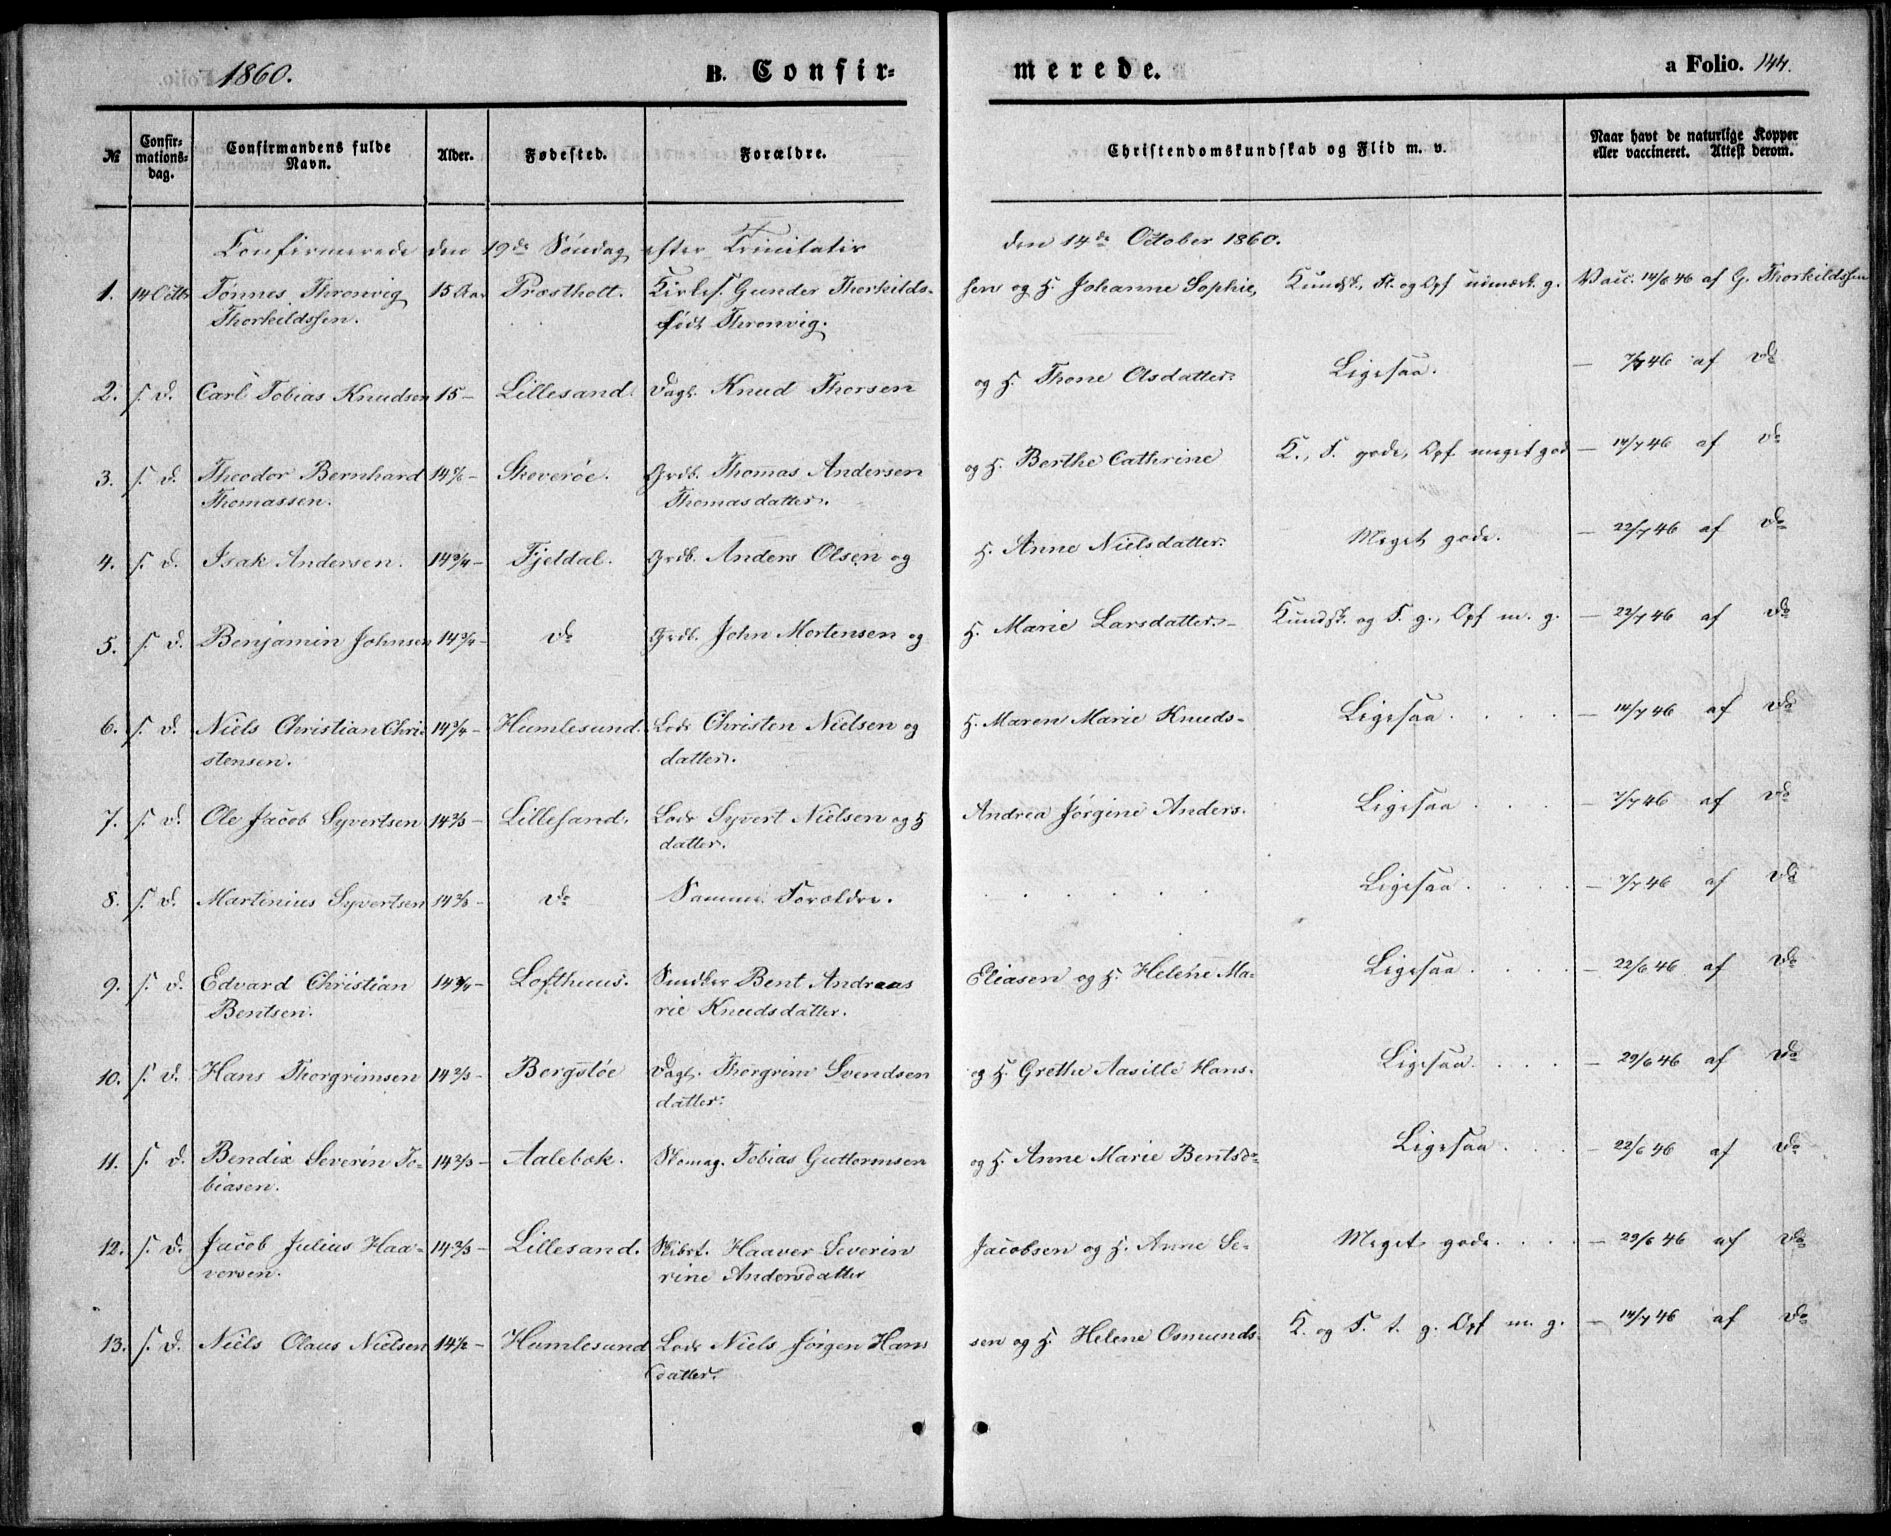 1860. B. Confir= merede. a Folio. 144.
№ Confir-mations-dag. Confirmandens fulde Navn. Alder. Fødested. Forældre. Christendomskundskab og Flid m. v. Naar havt de naturlige Kopper eller vaccineret. Attest derom.
Confirmerede den 19de Søndag efter Trinitatis den 14de October 1860.
1. 14 Octbr Tønnes Thronvig 15 Aar Præstholt. Kirkes. Gunder Thorkilds- sen og H. Johanne Sophie, Kundsk., Fl. og Opf udmærk. g. Vacc. 14/6 46 af G. Thorkildssen
Thorkildssen. født Thronvig.
2. s. d. Carl Tobias Knudsen 15 – Lillesand. Dagl. Knud Thorsen og H. Thone Olsdatter. Ligesaa. – 7/7 46 af do
3. s. d. Theodor Bernhard Skoverøe. Grdb. Thomas Andersen og H. Berthe Cathrine K., F. gode, Opf meget god – 14/7 46 af do
Thomassen. Thomasdatter.
4. s. d. Isak Andersen. 14 3/4 – Fjeldal. Grdb. Anders Olsen og H. Anne Nielsdatter. Meget gode. – 22/7 46 af do
5. s. d. Benjamin Johnsen 14 3/4 – do Grdb. John Mortensen og H. Marie Larsdatter. – Kundsk. og F. g., Opf m. g. – 22/7 46 af do
6. s. d. Niels Christian Chri- 14 3/4 – Humlesund. Lods Christen Nielsen og H. Maren Marie Knuds- Ligesaa . . . . – 14/7 46 af do
stensen. datter.
7. s. d. Ole Jacob Syvertsen 14 2/3 – Lillesand. Lods Syvert Nielsen og H Andrea Jørgine Anders- Ligesaa . . . – 7/7 46 af do
datter.
8. s. d. Martinius Syvertsen 14 2/3 – do Samme Forældre. . . . . . Ligesaa . . . – 7/7 46 af do
9. s. d. Edvard Christian 14 3/4 – Lofthuus. Snedker Bent Andreas Eliasen og H. Helene Ma- Ligesaa . . . – 22/6 46 af do
Bentsen. rie Knudsdatter.
10. s. d. Hans Thorgrimsen 14 2/3 – Borgstøe Dagl. Thorgrim Svendsen og H. Grethe Aasille Hans- Ligesaa. . . . – 29/6 46 af do
datter.
11. s. d. Bendix Severin To- 14 2/3 – Aalebæk. Skomag. Tobias Guttormsen og H. Anne Marie Bentsdr Ligesaa . . . – 22/6 46 af do
biasen.
12. s. d. Jacob Julius Haa- 14 2/3 – Lillesand. Skibsf. Haaver Severin Jacobsen og H. Anne Se- Meget gode. . . . – 29/6 46 af do
versen. rine Andersdatter
13. s. d. Niels Olaus Nielsen 14 1/2 – Humlesund Lods Niels Jørgen Han sen og H. Helene Osmunds- K. og F. t. g. Opf m. g. – 14/7 46 af do
datter.